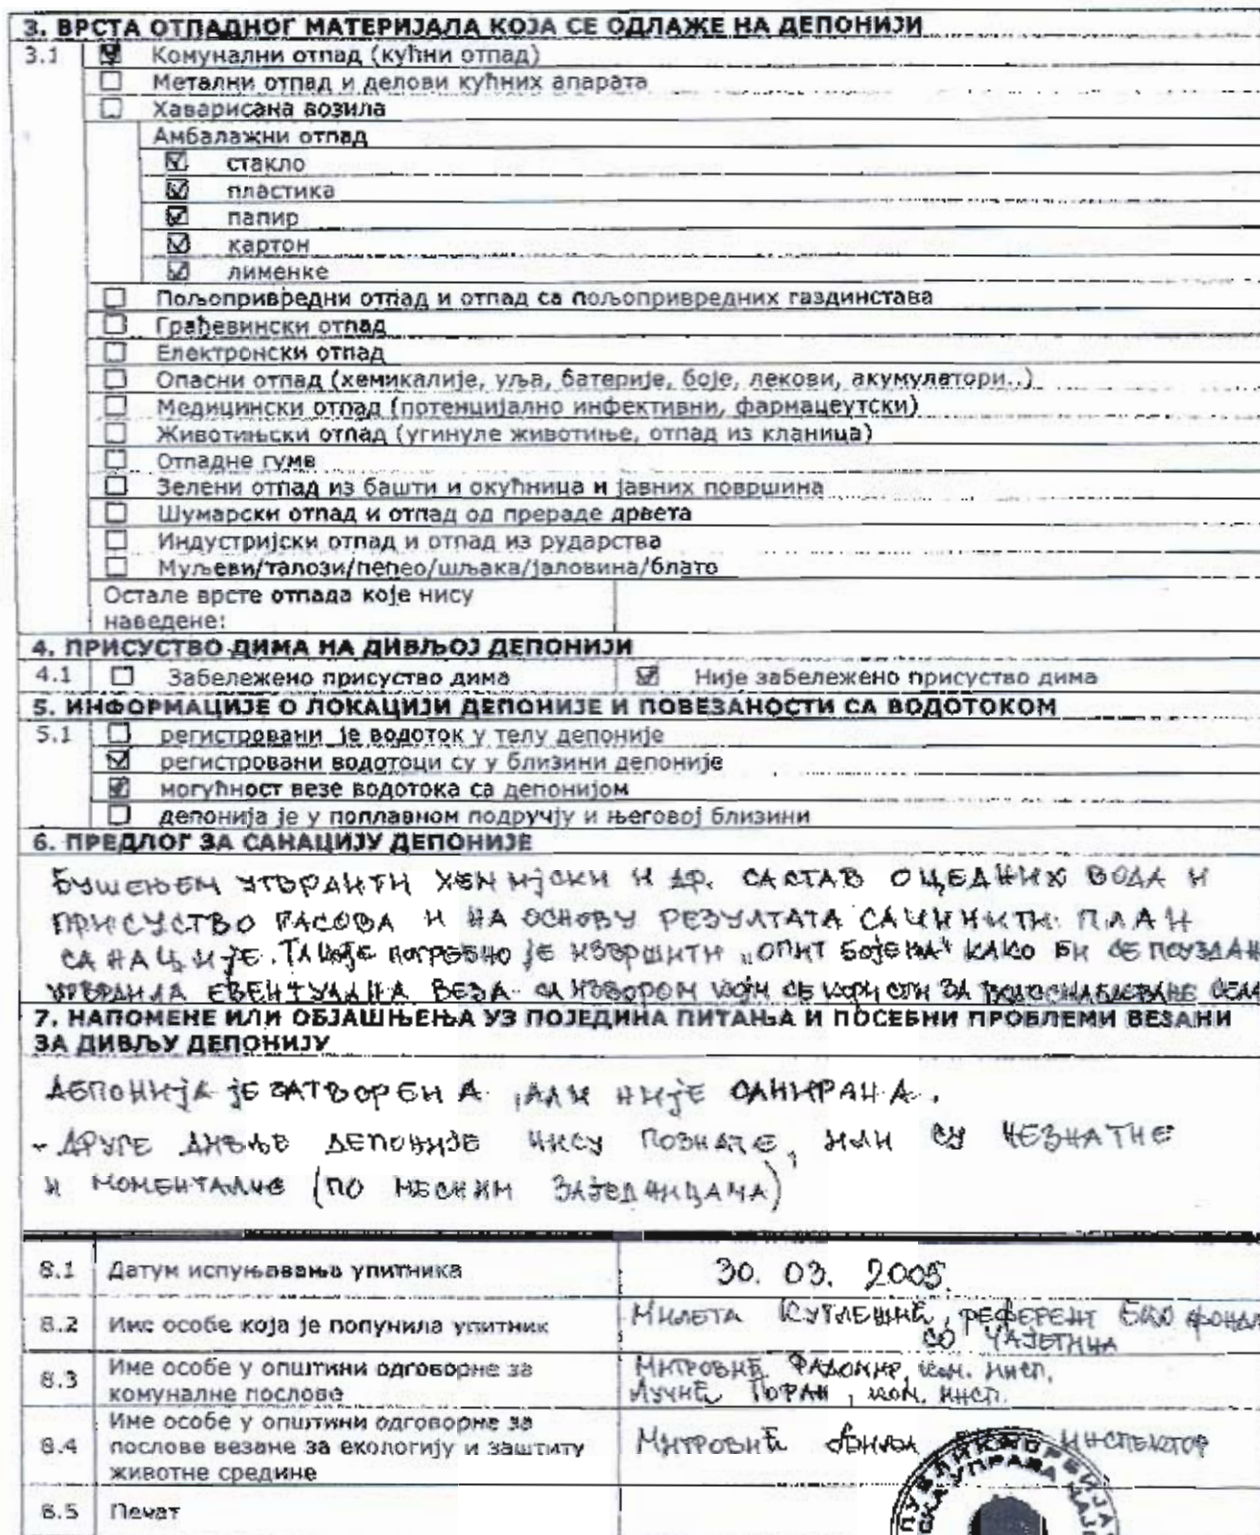 3. ВРСТА ОТПАДНОГ МАТЕРИЈАЛА КОЈА СЕ ОДЛАЖЕ НА ДЕПОНИЈИ
3.1 Комунални отпад (кућни отпад)
Метални отпад и делови кућних апарата
Хаварисана возила
Амбалажни отпад
стакло
пластика
папир
картон
лименке
Пољопривредни отпад и отпад са пољопривредних газдинстава
Грађевински отпад
Електронски отпад
Опасни отпад (хемикалије, уља, батерије, боје, лекови, акумулатори..)
Медицински отпад (потенцијално инфективни, фармацеутски)
Животињски отпад (угинуле животиње, отпад из кланица)
Отпадне гуме
Зелени отпад из башти и окућница и јавних површина
Шумарски отпад и отпад од прераде дрвета
Индустријски отпад и отпад из рударства
Муљеви/талози/пепео/шљака/јаловина/блато
Остале врсте отпада које нису
наведене:
4. ПРИСУСТВО ДИМА НА ДИВЉОЈ ДЕПОНИЈИ
4.1 Забележено присуство дима Није забележено присуство дима
5. ИНФОРМАЦИЈЕ О ЛОКАЦИЈИ ДЕПОНИЈЕ И ПОВЕЗАНОСТИ СА ВОДОТОКОМ
5.1 регистровани је водоток у телу депоније
регистровани водотоци су у близини депоније
могућност везе водотока са депонијом
депонија је у поплавном подручју и његовој близини
6. ПРЕДЛОГ ЗА САНАЦИЈУ ДЕПОНИЈЕ
БУШЕЊЕМ УТВРДИТИ ХЕМИЈСКИ И ДР. САСТАВ ОЦЕДНИХ ВОДА И
ПРИСУСТВО ГАСОВА И НА ОСНОВУ РЕЗУЛТАТА САЧИНИТИ ПЛАН
САНАЦИЈЕ. ТАКОЂЕ ПОТРЕБНО ЈЕ ИЗВРШИТИ „ОПИТ БОЈЕЊА" КАКО БИ СЕ ПОУЗДАН
УТВРДИЛА ЕВЕНТУАЛНА ВЕЗА СА ИЗВОРОМ КОЈИ СЕ КОРИСТИ ЗА ВОДОСНАБДЕВАЊЕ СЕЛА
7. НАПОМЕНЕ ИЛИ ОБЈАШЊЕЊА УЗ ПОЈЕДИНА ПИТАЊА И ПОСЕБНИ ПРОБЛЕМИ ВЕЗАНИ
ЗА ДИВЉУ ДЕПОНИЈУ
ДЕПОНИЈА ЈЕ ЗАТВОРЕНА, АЛИ НИЈЕ САНИРАНА.
- ДРУГЕ ДИВЉЕ ДЕПОНИЈЕ НИСУ ПОЗНАТЕ, ИЛИ СУ НЕЗНАТНЕ
И МОМЕНТАЛНЕ (ПО МЕСНИМ ЗАЈЕДНИЦАМА)
8.1 Датум испуњавања упитника 30. 03. 2005.
8.2 Име особе која је попунила упитник МИЛЕТА КУТЛЕШИЋ, РЕФЕРЕНТ ЕКО ФОНДА
СО ЧАЈЕТИНА
8.3 Име особе у општини одговорне за
комуналне послове
МИТРОВИЋ РАДОМИР, КОМ. ИНСП.
ЛУЧИЋ ГОРАН, КОМ. ИНСП.
8.4 Име особе у општини одговорне за
послове везане за екологију и заштиту
животне средине
МИТРОВИЋ ИНСПЕКТОР
8.5 Печат